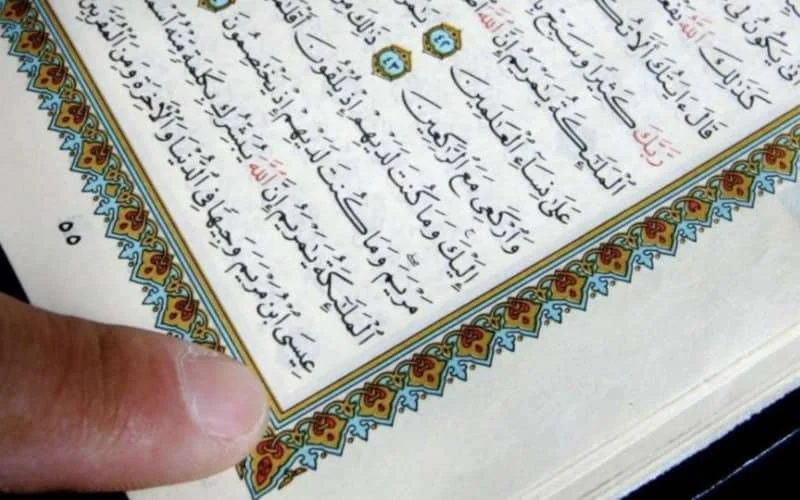 يَكُونُ لِى
كَذَٰلِكَ ٱللَّهُ
قَالَ ءَايَتُكَ أَلَّا
رَّبَّكَ كَثِيرًا وَسَبِّحْ
ٱلْمَلَٰٓئِكَةُ يَٰمَرْيَمُ إِنَّ ٱللَّهَ
عَلَىٰ نِسَآءِ ٱلْعَٰلَمِينَ ٤٢
وَٱرْكَعِى مَعَ ٱلرَّٰكِعِينَ ٤٣ ذَٰلِكَ
إِلَيْكَ وَمَا كُنتَ لَدَيْهِمْ إِذْ يُلْقُونَ
مَرْيَمَ وَمَا كُنتَ لَدَيْهِمْ إِذْ يَخْتَصِمُونَ
ٱلْمَلَٰٓئِكَةُ يَٰمَرْيَمُ إِنَّ ٱللَّهَ يُبَشِّرُكِ بِكَلِمَةٍ مِّنْهُ
عِيسَى ٱبْنُ مَرْيَمَ وَجِيهًا فِى ٱلدُّنْيَا وَٱلْأَخِرَةِ وَمِنَ ٱلْمُقَرَّبِينَ
٥٥